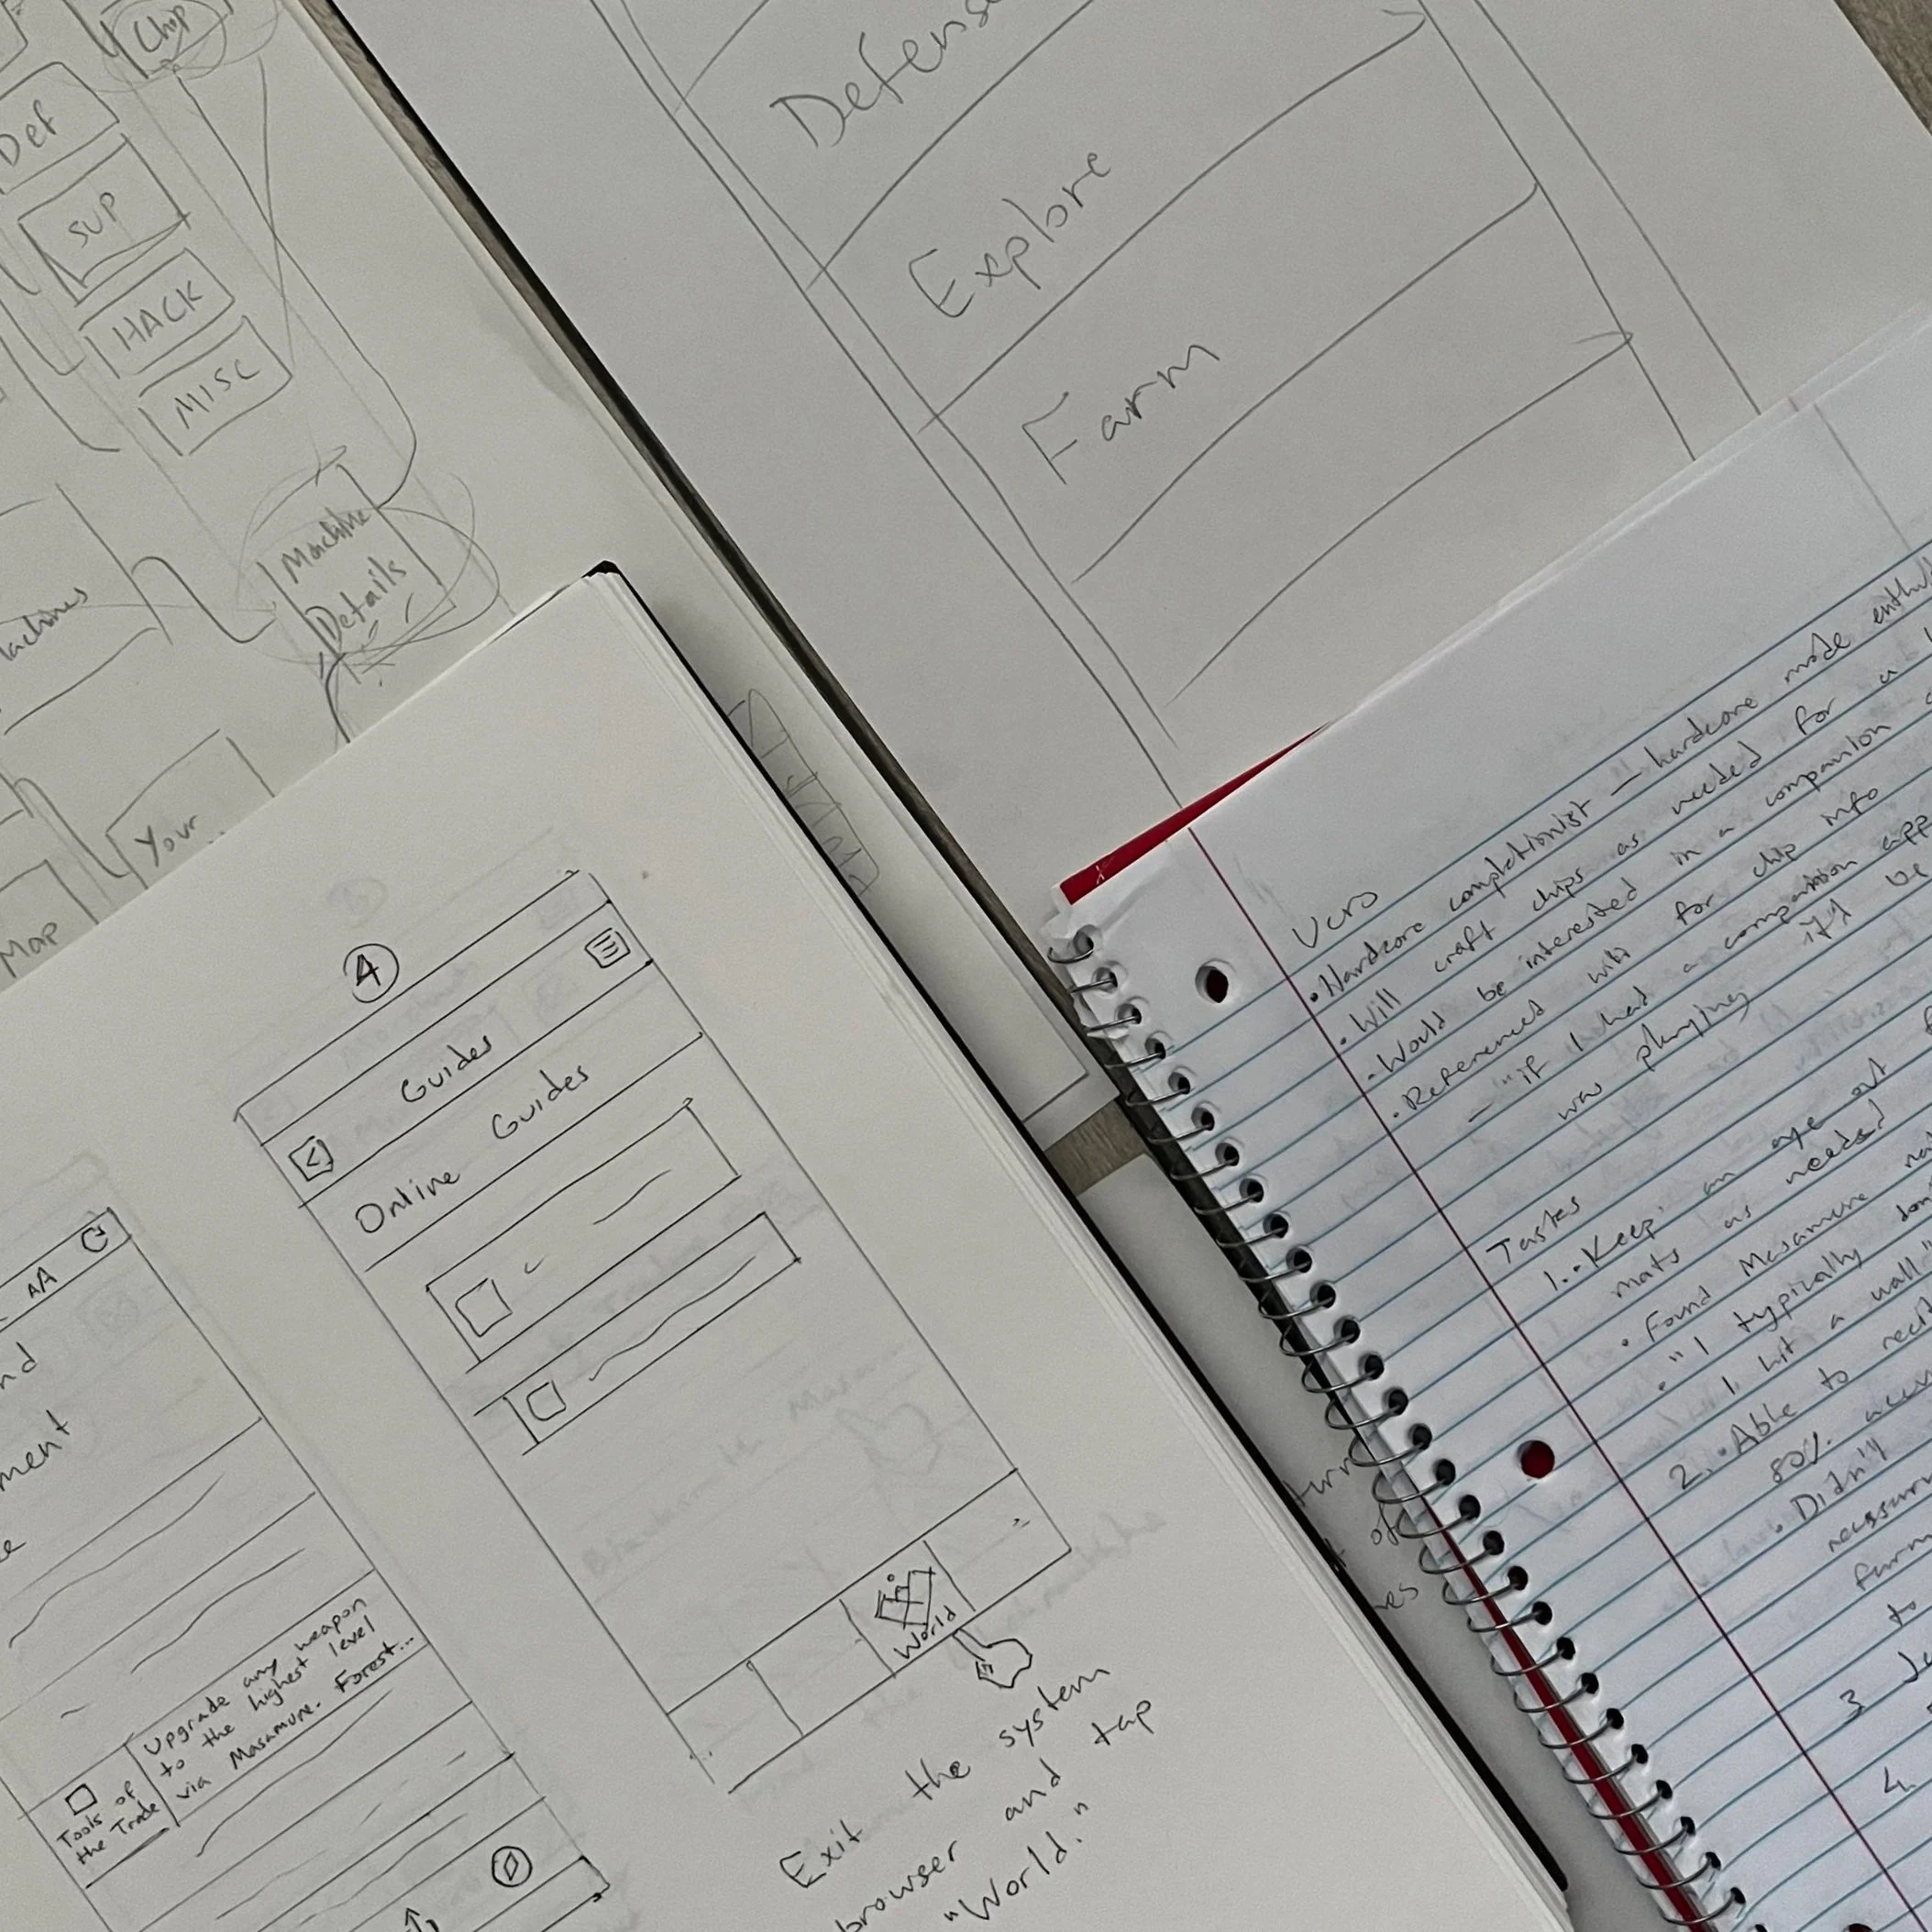 Chip
Def
SUP
HACK
MISC
Machine
Details
achines
Your
Map
Defens
Explore
Farm
4
Guides
Online Guides
World
Exit the system
browser and tap
"World."
AA
nd
ment
e
Upgrade any weapon
to the highest level
via Masamune. Forest...
Tools of
the Trade
turn
of
es
• Hardcore completionist — hardcore mode enthu
• Will craft chips as needed for a
• Would be interested in a companion
• Referenced wiki for chip info
— "if I had a companion app
was playing it'd be
Tasks
1. • Keep an eye out
mats as needed
• Found Masamune
• "I typically don
I hit a wall"
2. • Able to
80%
• Didn't
necessar
farm
to
3
4.